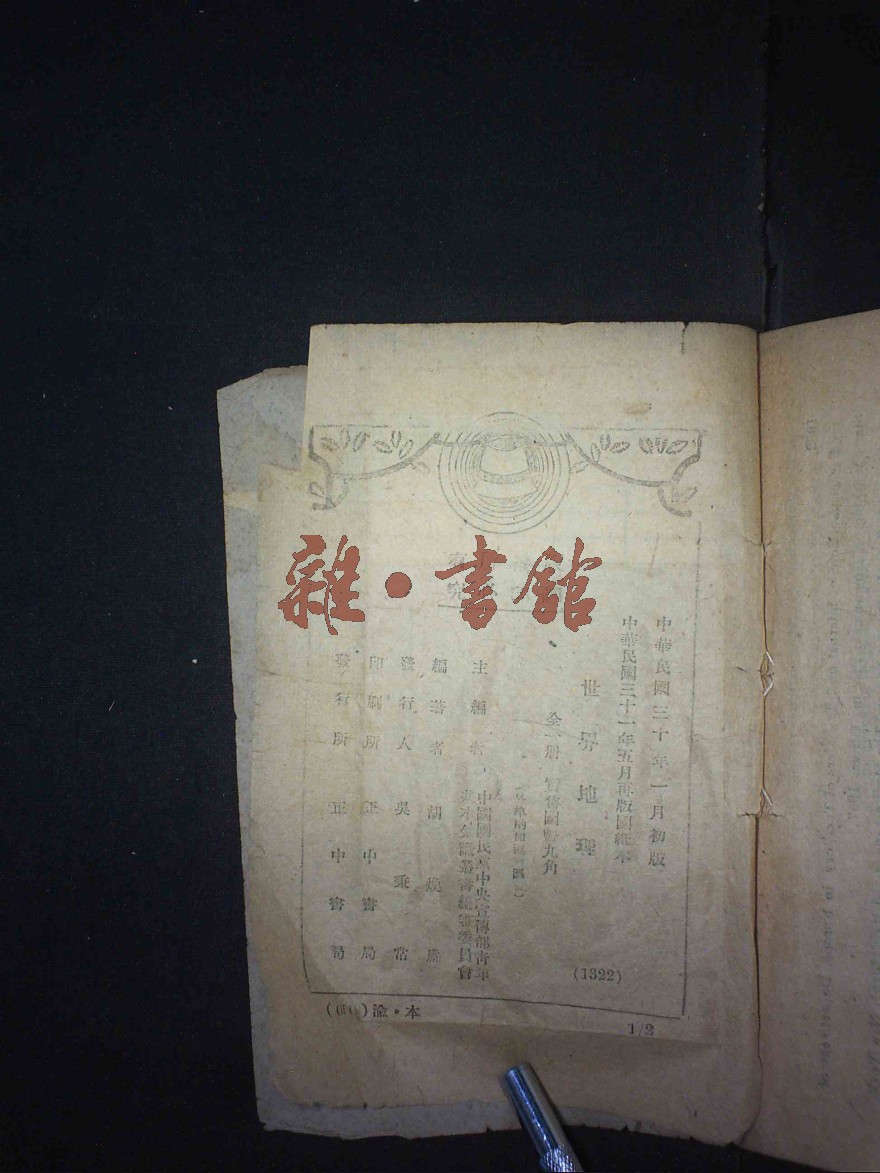 雜·書館
中華民國三十年一月初版
中華民國三十一年五月再版國紙本
世界地理
全一冊 實價國幣九角
主編者 中國國民黨中央宣傳部青年
基本知識叢書編纂委員會
編著者 胡煥庸
發行人 吳秉常
印刷所 正中書局
發行所 正中書局
(1322)
渝·本
1/2